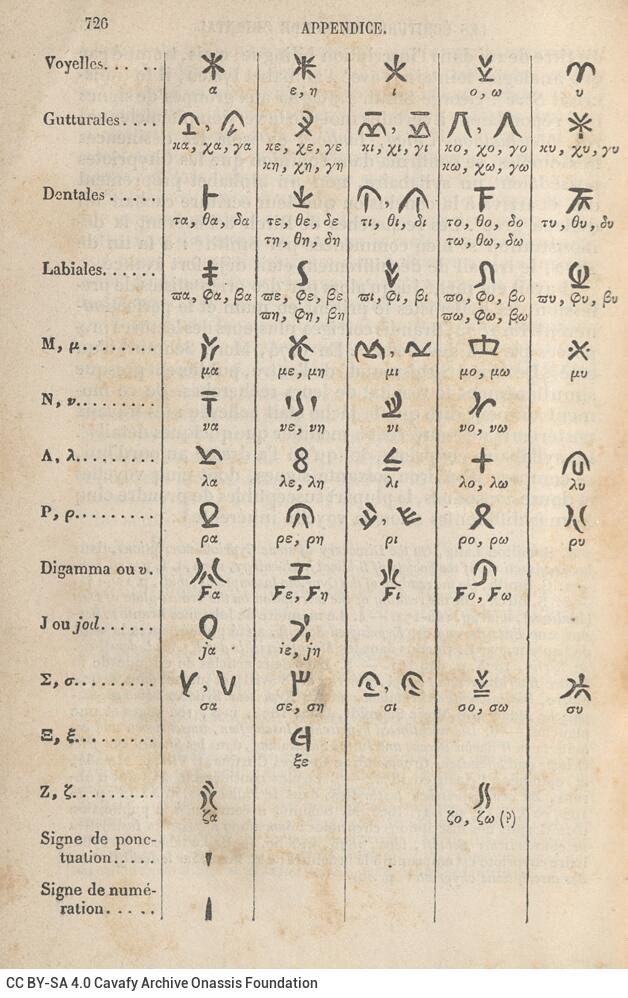 726 APPENDICE.
Voyelles. . . . . α ε, η ι ο, ω υ
Gutturales. . . . κα, χα, γα κε, χε, γε κι, χι, γι κο, χο, γο κυ, χυ, γυ
κη, χη, γη κω, χω, γω
Dentales. . . . . τα, θα, δα τε, θε, δε τι, θι, δι το, θο, δο τυ, θυ, δυ
τη, θη, δη τω, θω, δω
Labiales. . . . . . ϖα, φα, βα ϖε, φε, βε ϖι, φι, βι ϖο, φο, βο ϖυ, φυ, βυ
ϖη, φη, βη ϖω, φω, βω
Μ, μ. . . . . . . . . μα με, μη μι μο, μω μυ
Ν, ν. . . . . . . . . να νε, νη νι νο, νω
Λ, λ. . . . . . . . . λα λε, λη λι λο, λω λυ
Ρ, ρ. . . . . . . . . ρα ρε, ρη ρι ρο, ρω ρυ
Digamma ou υ. Fα Fε, Fη Fι Fο, Fω
J ou jod. . . . . . jα ιε, jη
Σ, σ. . . . . . . . . σα σε, ση σι σο, σω συ
Ξ, ξ. . . . . . . . . ξε
Ζ, ζ. . . . . . . . . ζα ζο, ζω (?)
Signe de ponc-
tuation. . . . .
Signe de numé-
ration. . . . . .
CC BY-SA 4.0 Cavafy Archive Onassis Foundation